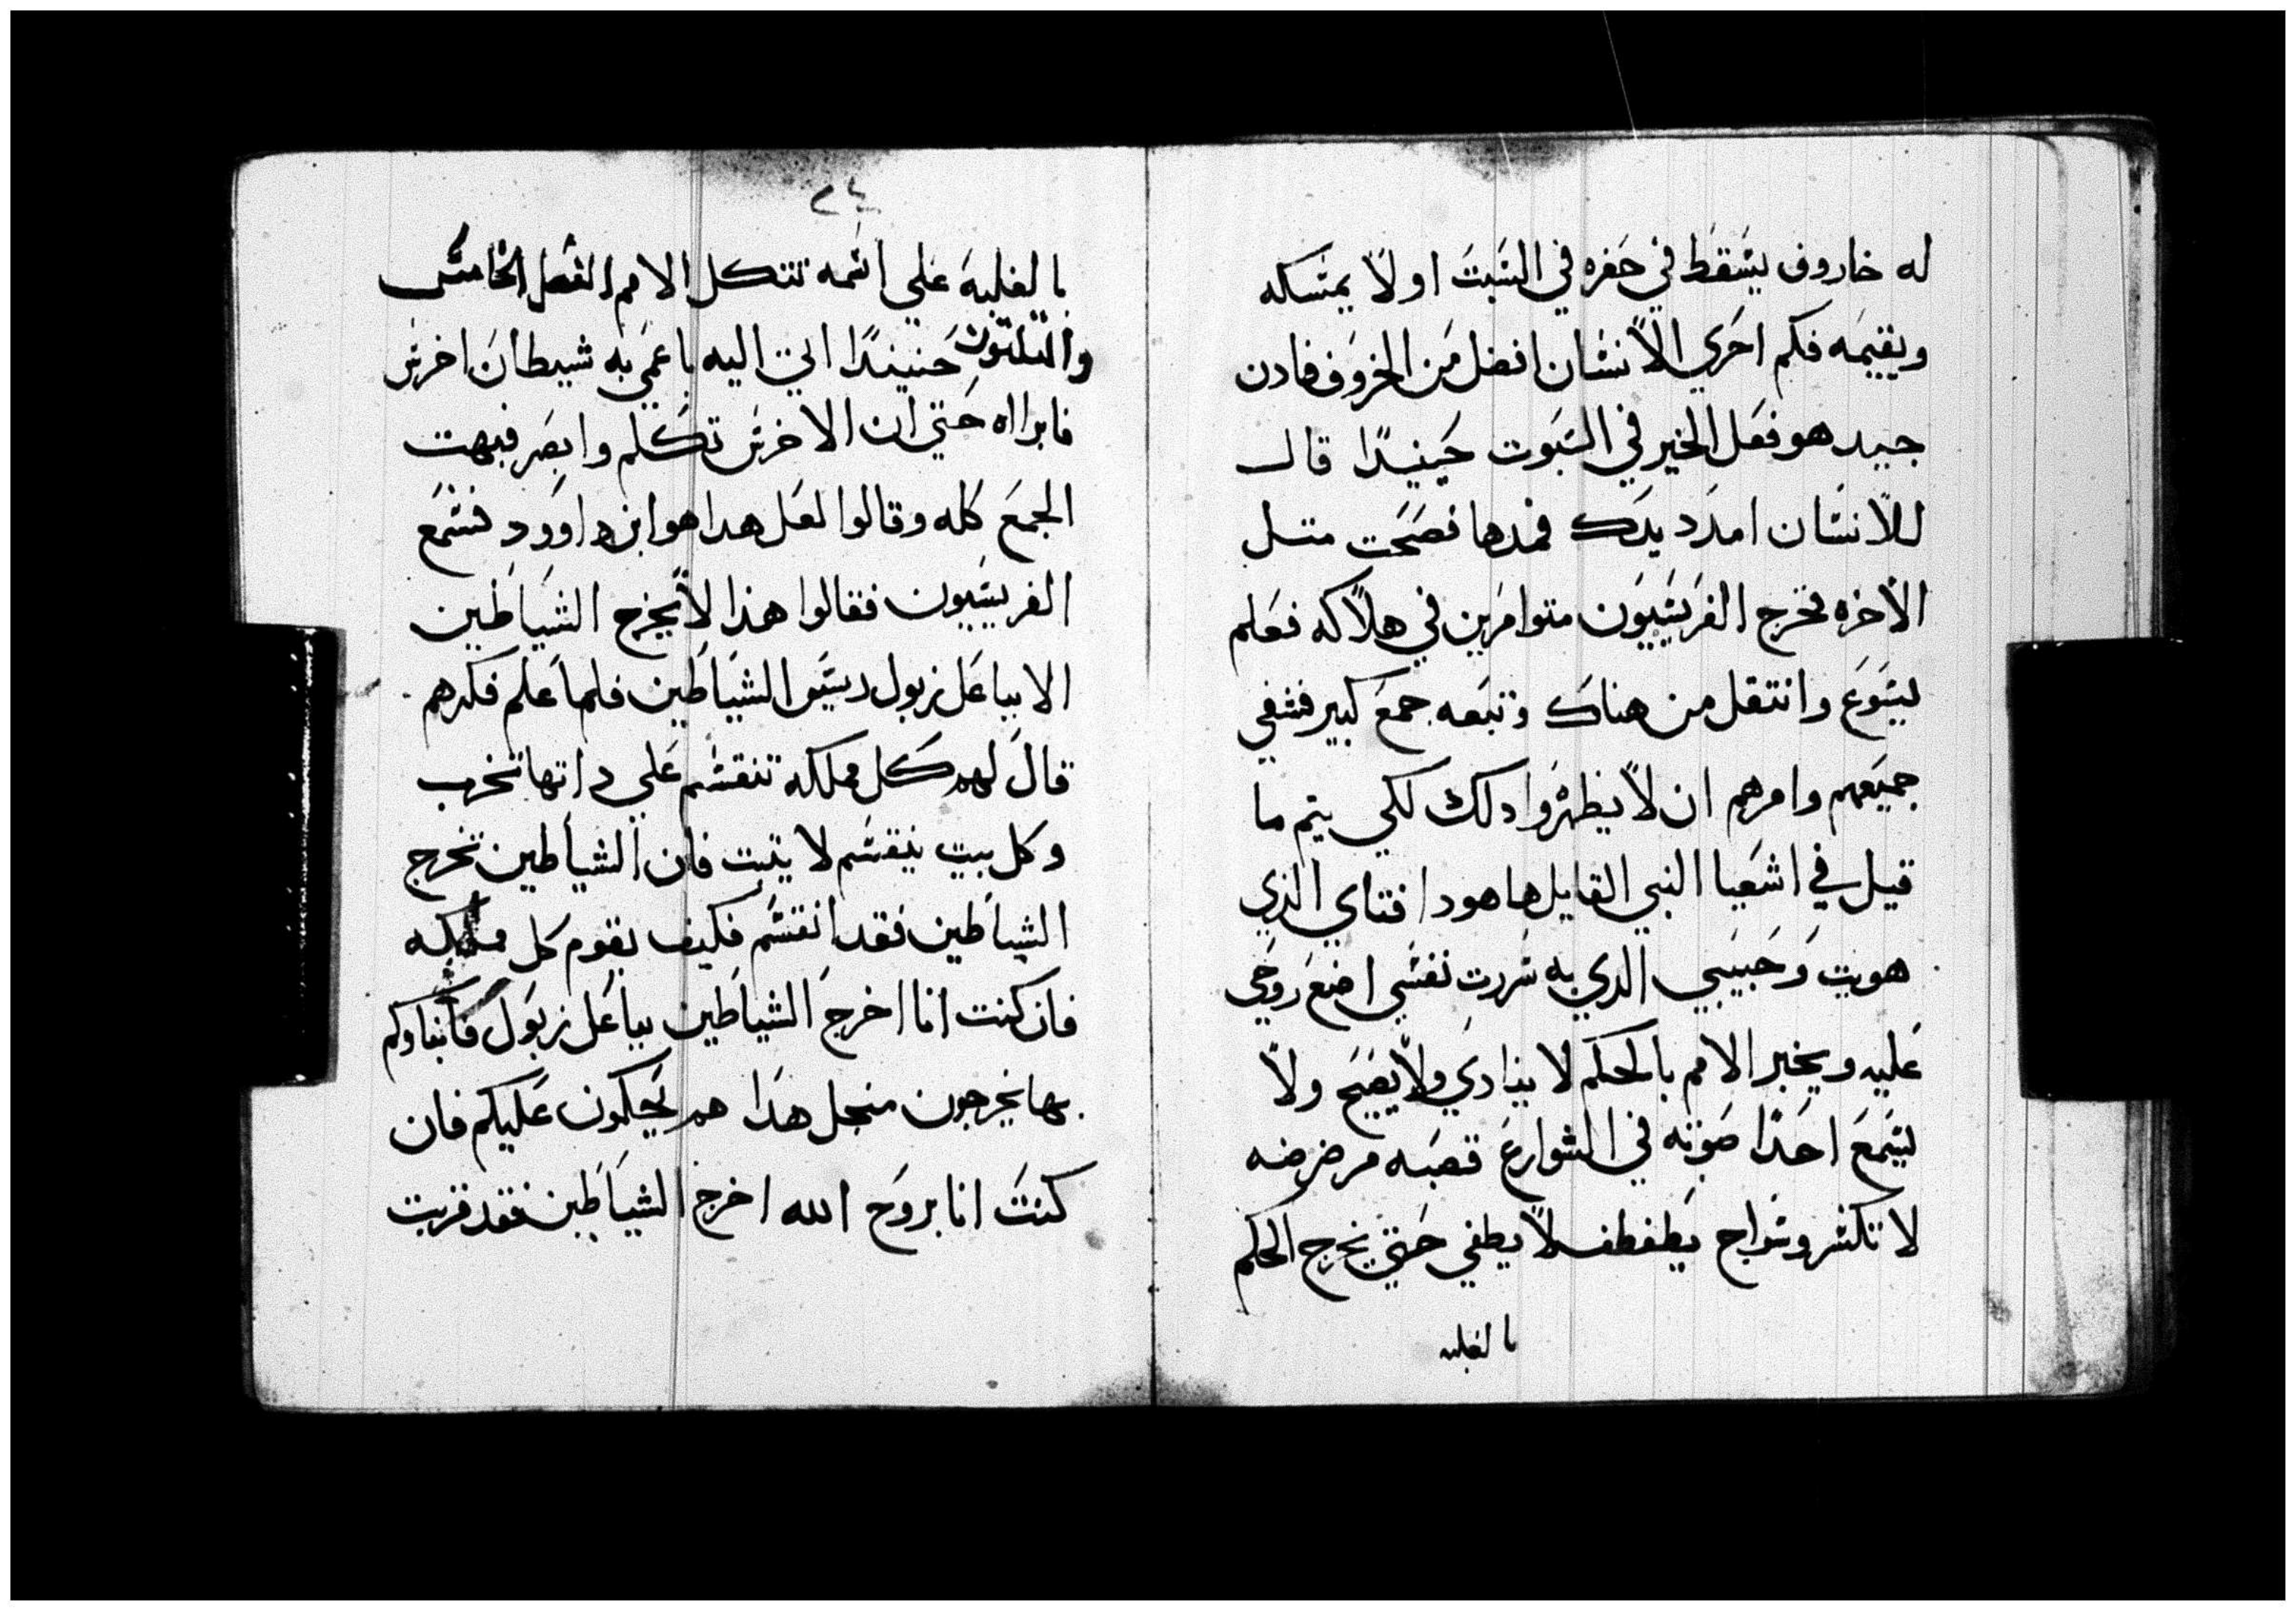 له خاروف يسقط في حفره في السبت اولا يمسكه
ويقيمه فكم احري الانسان افضل من الخروف فادن
جيد هو فعل الخير في السبوت حينيدا قال
للانسان امدد يدك فمدها فصحت متل
الاخره فخرج الفريسيون متوامرين في هلاكه فعلم
يسوع وانتقل من هناك وتبعه جمع كبير فشفي
جميعهم وامرهم ان لا يظهروا دلك لكي يتم ما
قيل في اشعيا النبي القايل ها هودا فتاي الذي
هويت وحبيبي الدي به سررت نفسي اضع روحي
عليه ويخبر الامم بالحكم لا ينادي ولا يصيح ولا
يسمع احدا صوته في الشوارع قصبه مرضرضه
لا تكسر وسراج يطفطف لا يطفي حتي يخرج الحكم
بالغلبه
٢٤
بالغلبة علي اسمه تتكل الامم الفصل الخامس
والثلثون حنيندا اتي اليه باعمي به شيطان اخرس
فابرااه حتي ان الاخرس تكلم وابصر فبهت
الجمع كله وقالوا لعل هدا هو ابن داوود فسمع
الفريسيون فقالوا هذا لا يخرج الشياطين
الا بباعل زبول ريس الشياطين فلما علم فكرهم
قال لهم كل مملكه تنقسم علي داتها تخرب
وكل بيت ينقسم لا يتبت فان الشياطين تخرج
الشياطين فقد انقسم فكيف يقوم كل مملكه
فان كنت انا اخرج الشياطين بباعل زبول فأبناوكم
بما يخرجون منجل هدا هم يحكمون عليكم فان
كنت انا بروح الله اخرج الشياطين فقد قربت